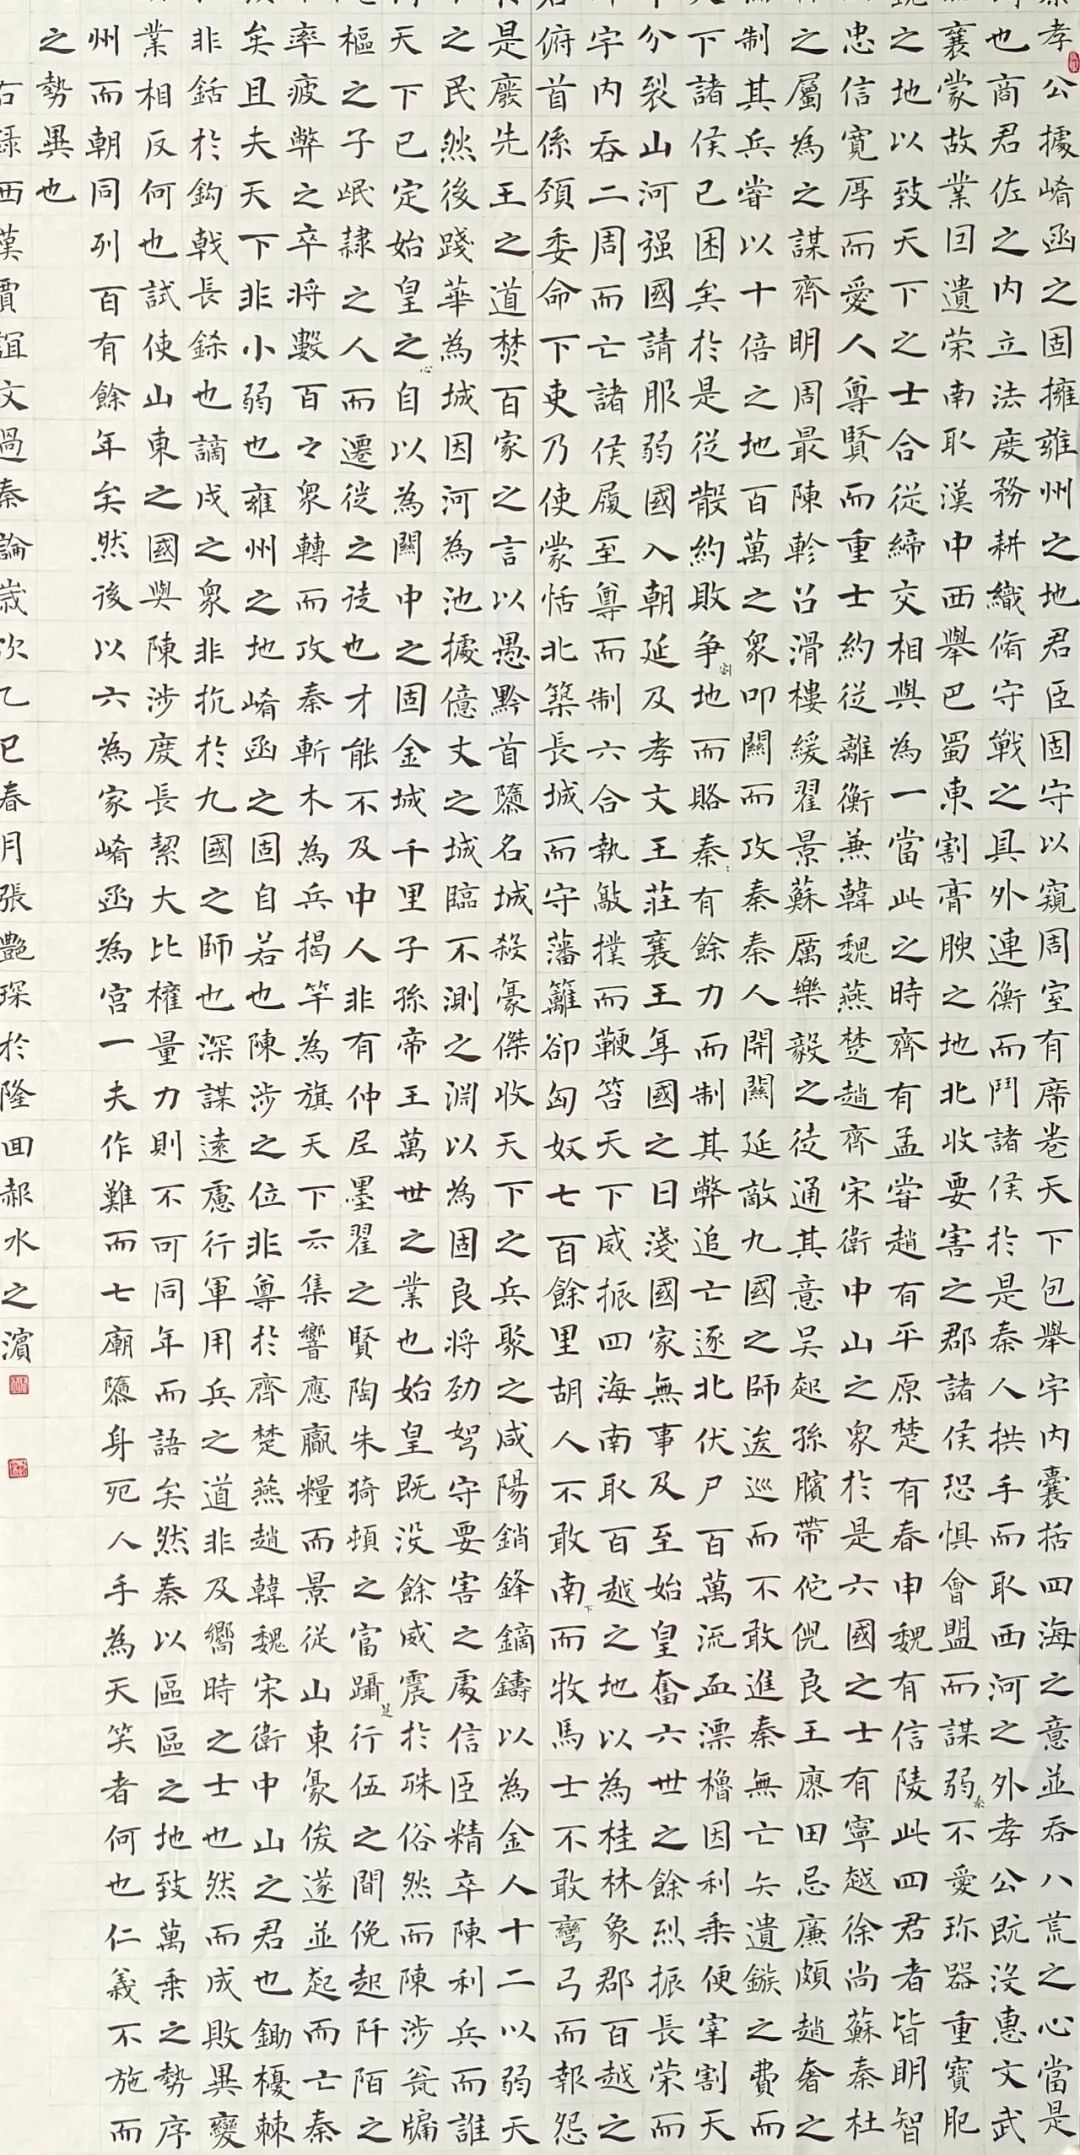 孝公據崤函之固擁雍州之地君臣固守以窺周室有席卷天下包舉宇内囊括四海之意並吞八荒之心當是
也商君佐之内立法度務耕織脩守戰之具外連衡而鬥諸侯於是秦人拱手而取西河之外孝公既沒惠文武
襄蒙故業因遺策南取漢中西舉巴蜀東割膏腴之地北收要害之郡諸侯恐惧會盟而謀弱秦不愛珍器重寶肥
之地以致天下之士合從締交相與為一當此之時齊有孟嘗趙有平原楚有春申魏有信陵此四君者皆明智
忠信寬厚而愛人尊賢而重士約從離衡兼韓魏燕楚趙齊宋衛中山之衆於是六國之士有寧越徐尚蘇秦杜
之屬為之謀齊明周最陳軫召滑樓緩翟景蘇厲樂毅之徒通其意吴起孫臏帶佗倪良王廖田忌廉頗趙奢之
制其兵嘗以十倍之地百萬之衆叩關而攻秦秦人開關延敵九國之師逡巡而不敢進秦無亡矢遺鏃之費而
下諸侯已困矣於是從散約敗争割地而賂秦秦有餘力而制其弊追亡逐北伏尸百萬流血漂櫓因利乘便宰割天
分裂山河强國請服弱國入朝延及孝文王莊襄王享國之日淺國家無事及至始皇奮六世之餘烈振長策而
宇内吞二周而亡諸侯履至尊而制六合執敲撲而鞭笞天下威振四海南取百越之地以為桂林象郡百越之
俯首係頸委命下吏乃使蒙恬北築長城而守藩籬卻匈奴七百餘里胡人不敢南下而牧馬士不敢彎弓而報怨
是廢先王之道焚百家之言以愚黔首隳名城殺豪傑收天下之兵聚之咸陽銷鋒鏑鑄以為金人十二以弱天
之民然後踐華為城因河為池據億丈之城臨不測之淵以為固良將勁弩守要害之處信臣精卒陳利兵而誰
天下已定始皇之心自以為關中之固金城千里子孫帝王萬世之業也始皇既没餘威震於殊俗然而陳涉瓮牖
樞之子氓隸之人而遷徙之徒也才能不及中人非有仲尼墨翟之賢陶朱猗頓之富躡足行伍之間俛起阡陌之
率疲弊之卒將數百々衆轉而攻秦斬木為兵揭竿為旗天下雲集響應贏糧而景從山東豪俊遂並起而亡秦
矣且夫天下非小弱也雍州之地崤函之固自若也陳涉之位非尊於齊楚燕趙韓魏宋衛中山之君也鋤櫌棘
非銛於鈎戟長鎩也謫戍之衆非抗於九國之師也深謀遠慮行軍用兵之道非及嚮時之士也然而成敗異變
業相反何也試使山東之國與陳涉度長絜大比權量力則不可同年而語矣然秦以區區之地致萬乘之勢序
州而朝同列百有餘年矣然後以六為家崤函為宮一夫作難而七廟隳身死人手為天笑者何也仁義不施而
之勢異也
右録西漢賈誼文過秦論歲次乙巳春月張艷琛於隆回郝水之濱